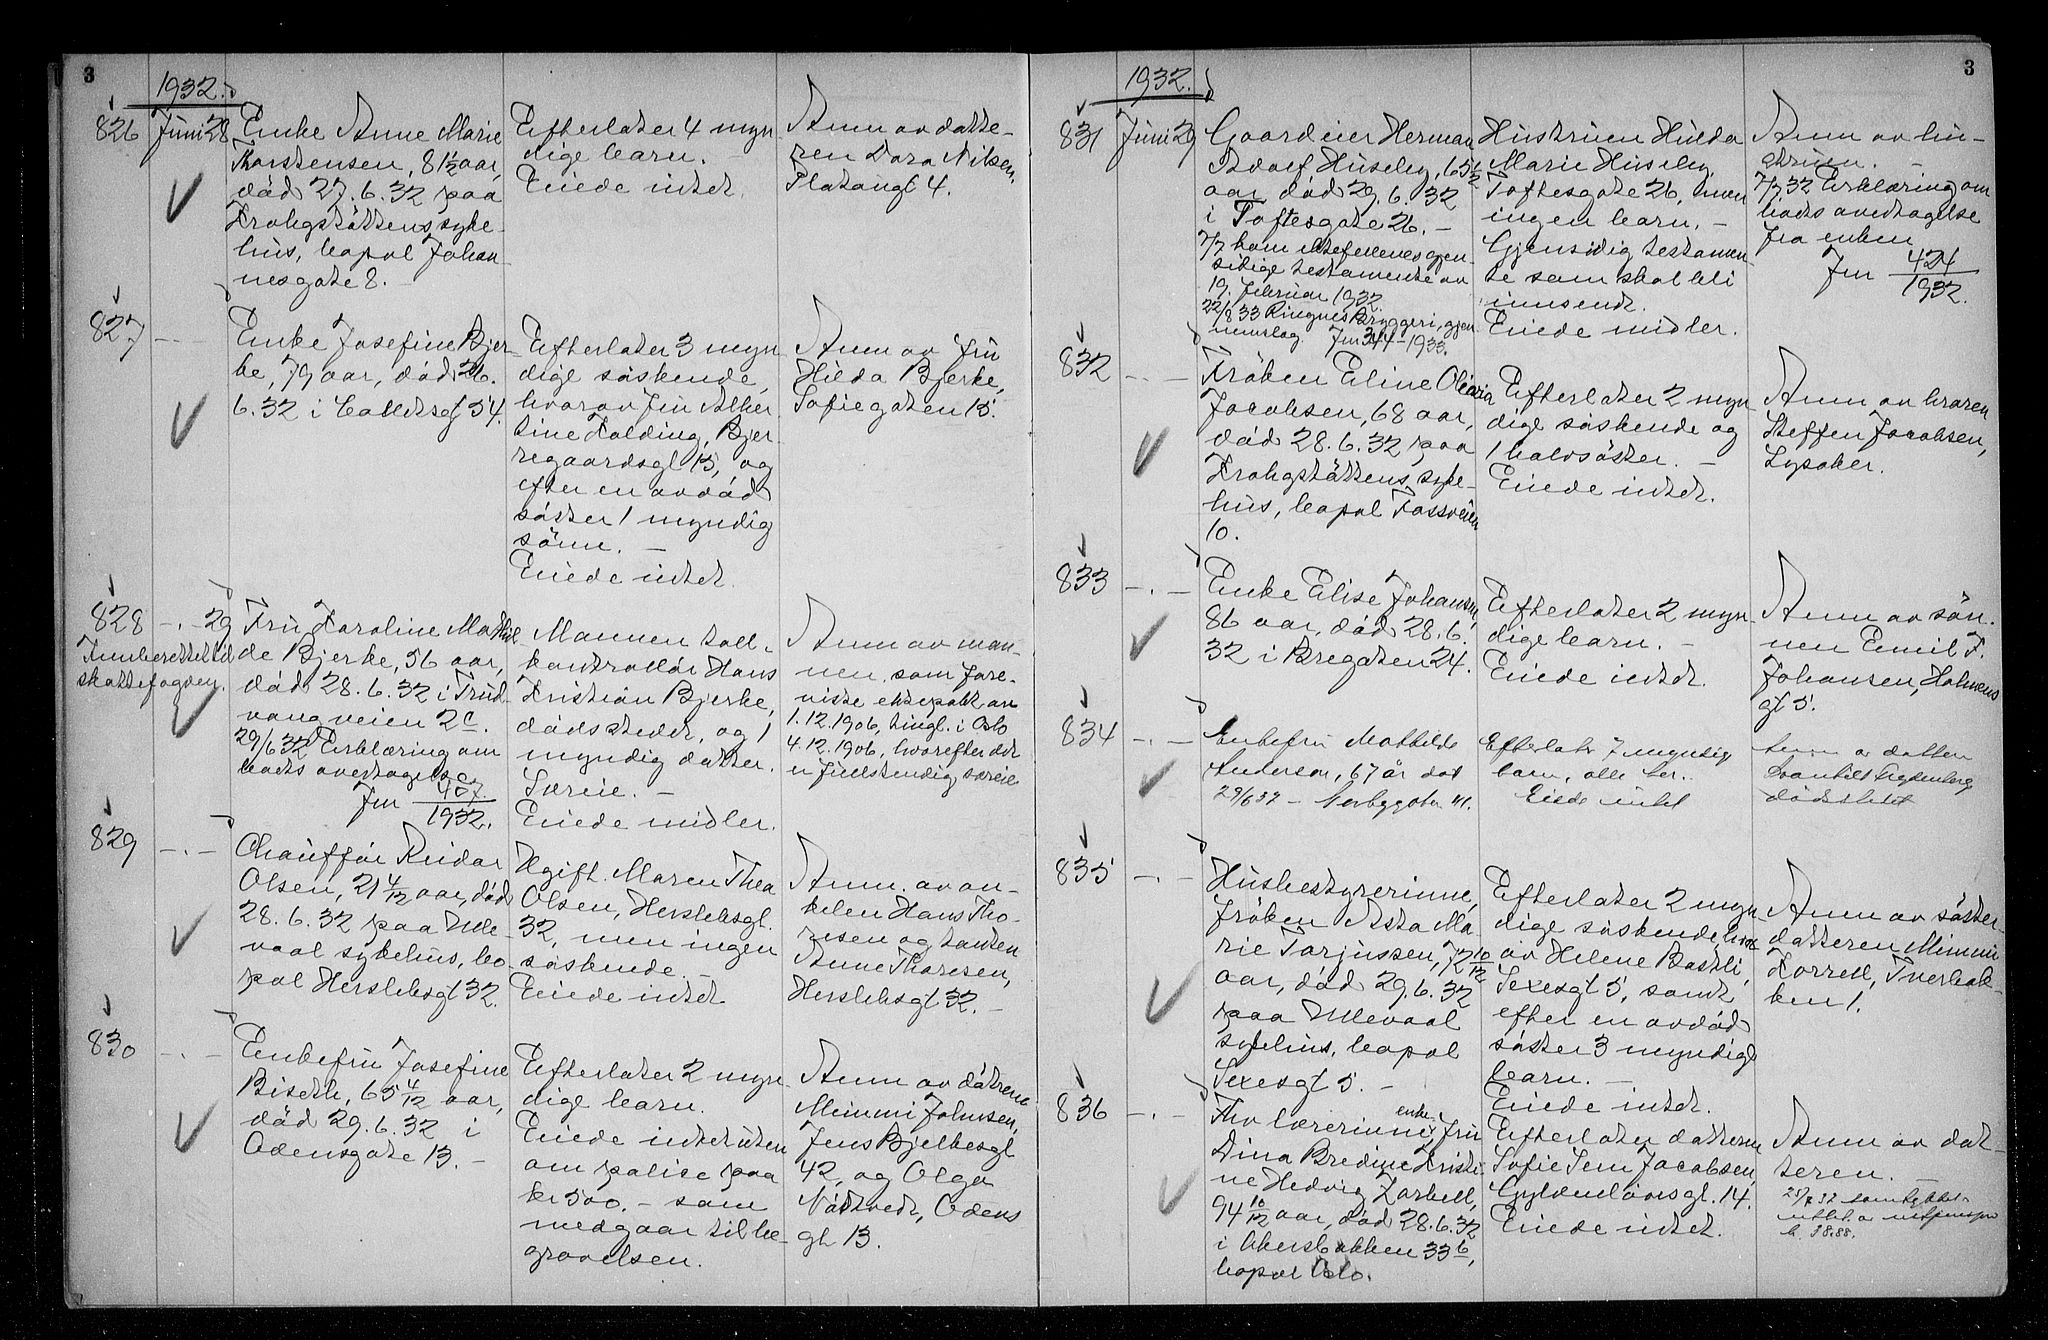 3
1932.
826
Juni 28
Enke Anne Marie
Thorstensen, 81 1/2 aar,
död 27.6.32 paa
Krohgstöttens syke-
hus, bopæl Johan-
nesgate 8. -
Efterlater 4 myn-
dige barn. -
Eiede intet.
Anm av datte-
ren Dora Nilsen,
Platangt 4.
827
- . -
Enke Josefine Bjer-
ke, 79 aar, död 26.
6.32 i Collettsgt 54.
Efterlater 3 myn-
dige söskende,
hvorav fru Alber-
tine Kolding, Bjer-
regaardsgt 15, og
efter en avdöd
söster 1 myndig
sönn. -
Eiede intet.
Anm av fru
Hilda Bjerke,
Sofiegaten 15.
828
- . - 29
Innberettet til
skattefogden.
Fru Karoline Mathil-
de Bjerke, 56 aar,
död 28.6.32 i Trud-
vangveien 2c.
29/6 32 Erklæring om
boets overtagelse
Jnr 407
1932.
Mannen toll-
kontrollör Hans
Kristian Bjerke,
dödsstedet, og 1
myndig datter.
Særeie. -
Eiede midler.
Anm av man-
nen, som fore-
viste ektepakt av
1.12.1906, tingl. i Oslo
4.12.1906, hvorefter det
er fuldstendig særeie
829
- . -
Chaufför Reidar
Olsen, 21 4/12 aar, död
28.6.32 paa Ulle-
vaal sykehus, bo-
pæl Herslebsgt 32.
Ugift. Maren Thea
Olsen, Herslebsgt.
32, men ingen
söskende. -
Eiede intet.
Anm. av on-
kelen Hans Tho-
resen og tanten
Anne Thoresen,
Herslebsgt 32. -
830
- . -
Enkefru Josefine
Biseth, 65 4/12 aar,
död 29.6.32 i
Odensgate 13. -
Efterlater 2 myn-
dige barn.
Eiede intet uten
om polise paa
kr 500. - som
medgaar til be-
gravelsen.
Anm av dötrene
Mimmi Johnsen,
Jens Bjelkesgt
42, og Olga
Nödtvedt, Odens
gt 13.
3
1932.
831
Juni 29
Gaardeier Herman
Adolf Huseby, 65 6/12
aar, död 29.6.32
i Toftesgate 26. -
7/7 kom ektefellenes gjen-
sidige testamente av
19. februar 1932.
22/8 33 Ringnes Bryggeri, gjen-
nemslag. Jnr 344 - 1933.
Hustruen Hulda
Marie Huseby,
Toftesgate 26, men
ingen barn. -
Gjensidig testamen-
te som skal bli
innsendt.
Eiede midler.
Anm av hu-
struen. -
7/7 32 Erklæring om
boets overtagelse
fra enken
Jnr 424
1932.
832
- . -
Fröken Eline Olivia
Jacobsen, 68 aar,
död 28.6.32 paa
Krohgstöttens syke-
hus, bopæl Fossveien
10.
Efterlater 2 myn-
dige söskende og
1 halvsöster. -
Eiede intet.
Anm av broren
Steffen Jacobsen,
Lysaker.
833
- . -
Enke Elise Johansen,
86 aar, död 28.6.
32 i Bregaten 24.
Efterlater 2 myn-
dige barn. -
Eiede intet.
Anm av sön-
nen Emil F.
Johansen, Holmens
gt 5.
834
- . -
Enkefru Mathilde
Andersen, 67 år död
29/6 32 -
Efterlater 7 myndig
barn, alle her.
Eiede intet
Anm av datteren
dödsstedet
835
- . -
Husbestyrerinne,
fröken Asta Ma-
rie Torjussen, 72 10/12
aar, död 29.6.32
paa Ullevaal
sykehus, bopæl
Sexesgt 5. -
Efterlater 2 myn
dige söskende, hvor
av Helene Bastli,
Sexesgt 5, samt
efter en avdöd
söster 3 myndige
barn. -
Eiede intet.
Anm av söster-
datteren Mimmi
Korrell, Tverbak-
ken 1.
836
- . -
Fhv lærerinne, enkefru
Dina Bredine Kristi-
ne Hedvig Zarbell,
94 10/12 aar, död 28.6.32
i Akersbakken 33 b,
bopæl Oslo.
Efterlater datteren
Sofie Sem Jacobsen,
Gyldenlövesgt. 14.
Eiede intet.
Anm av dat-
teren. -